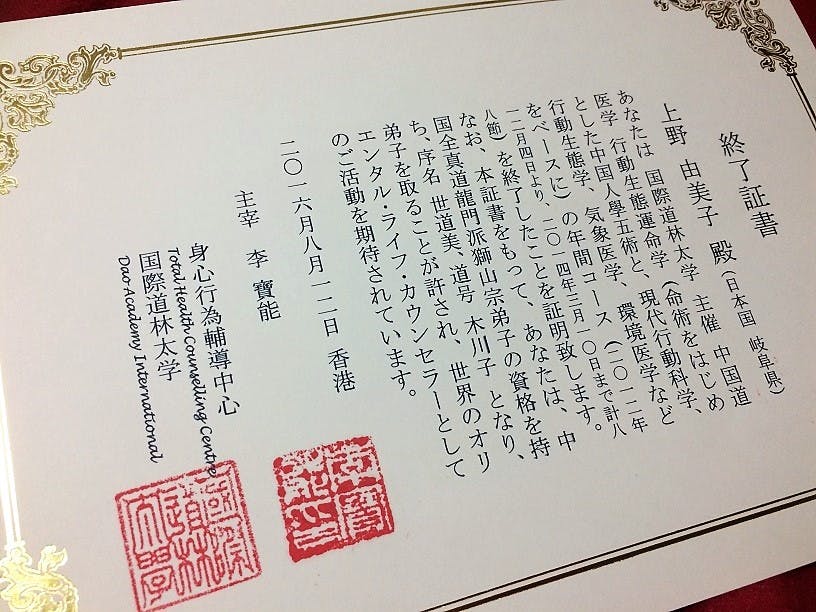 終了証書
上野 由美子 殿(日本国 岐阜県)
あなたは 国際道林太学 主催 中国道
医学 行動生態運命学(命術をはじめ
とした中国人學五術と、現代行動科学、
行動生態学、気象医学、環境医学など
をベースに)の年間コース(二〇一二年
一二月四日より、二〇一四年三月一〇日まで計八
八節)を終了したことを証明致します。
なお、本証書をもって、あなたは、中
国全真道龍門派獅山宗弟子の資格を持
ち、序名 世道美、道号 木川子 となり、
弟子を取ることが許され、世界のオリ
エンタル・ライフ・カウンセラーとして
のご活動を期待されています。
二〇一六月八月一二日 香港
主宰 李 寶能
身心行為輔導中心
Total Health Counselling Centre
国際道林太学
Dao Academy International